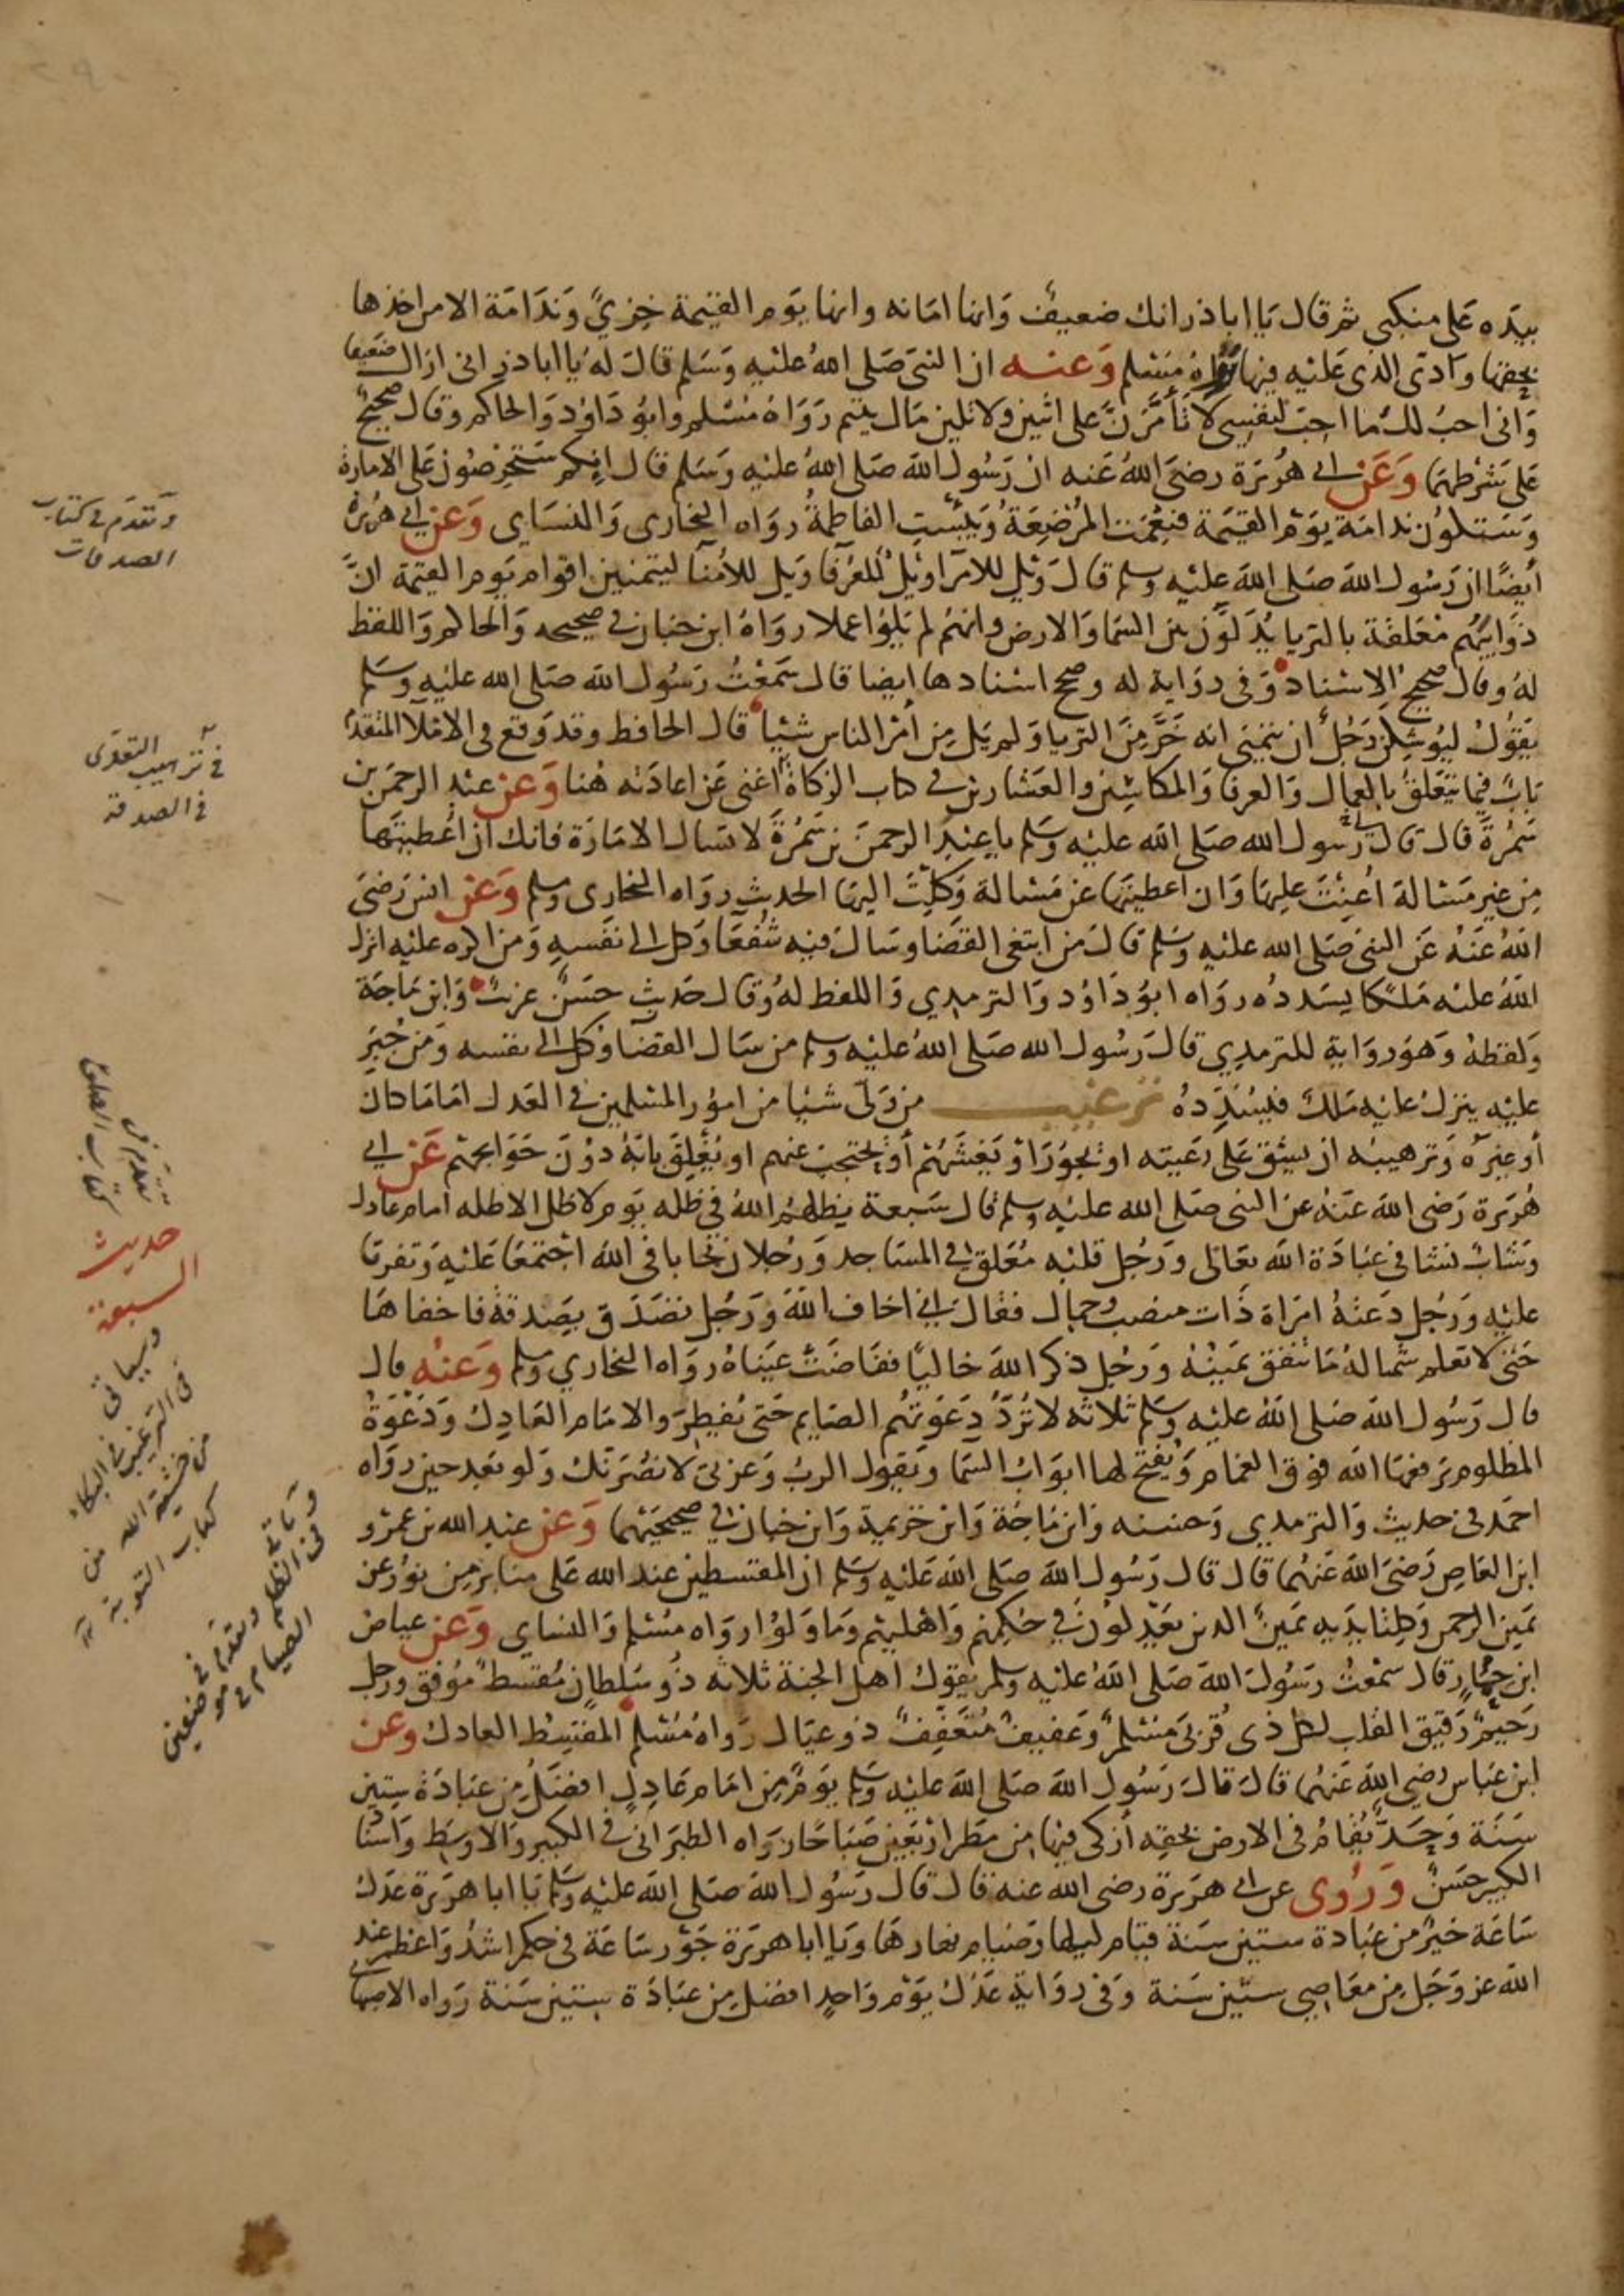 بيده على منكبي ثم قال يا اباذر انك ضعيف وانها امانه وانها يوم القيمة خزي وندامة الا من اخذها
بحقها وادى الذى عليه فيها رواه مسلم وعنه ان النبى صلى الله عليه وسلم قال له يا اباذر انى اراك ضعيفا
وانى احب لك ما احب لنفسى لا تأمرن على اثنين ولا تلين مال يتيم رواه مسلم وابو داود والحاكم وقال صحيح
على شرطهما وعن ابى هريرة رضى الله عنه ان رسول الله صلى الله عليه وسلم قال انكم ستحرصون على الامارة
وستكون ندامة يوم القيمة فنعمت المرضعة وبئست الفاطمة رواه البخارى والنساى وعن ابى هريرة
أيضا ان رسول الله صلى الله عليه وسلم قال ويل للامرآ ويل للعرفا ويل للأمنا ليتمنين اقوام يوم القيمة ان
ذوايبهم معلقة بالثريا يدلون بين السما والارض وانهم لم يلوا عملا رواه ابن حبان في صحيحه والحاكم واللفظ
له وقال صحيح الاسناد وفى رواية له وصحح اسنادها ايضا قال سمعت رسول الله صلى الله عليه وسلم
يقول ليوشكن رجل أن يتمنى انه خر من الثريا ولم يل من أمر الناس شيئا قال الحافظ وقد وقع فى الاملآ المتقدم
باب فيما يتعلق بالعمال والعرفا والمكاسين والعشارين في كتاب الزكاة اغنى عن اعادته هنا وعن عبد الرحمن بن
سمرة قال قال لى رسول الله صلى الله عليه وسلم يا عبد الرحمن بن سمرة لا تسال الامارة فانك ان اعطيتها
من غير مسالة أعنت عليها وان اعطيتها عن مسالة وكلت اليها الحديث رواه البخارى ومسلم وعن انس رضى
الله عنه عن النبى صلى الله عليه وسلم قال من ابتغى القضا وسال فيه شفعا وكل الى نفسه ومن اكره عليه انزل
الله عليه ملكا يسدده رواه ابو داود والترمدي واللفظ له وقال حديث حسن غريب وابن ماجة
ولفظه وهو رواية للترمدي قال رسول الله صلى الله عليه وسلم من سال القضآ وكل الى نفسه ومن جبر
عليه ينزل عليه ملك فيسدده ترغيب من ولى شيئا من امور المسلمين في العدل اماما كان
أو غيره وترهيبه ان يشق على رعيته او يجور او يغشهم أو يحتجب عنهم او يغلق بابه دون حوائجهم عن ابي
هريرة رضى الله عنه عن النبى صلى الله عليه وسلم قال سبعة يظلهم الله في ظله يوم لا ظل الا ظله امام عادل
وشاب نشا في عبادة الله تعالى ورجل قلبه معلق في المساجد ورجلان تحابا فى الله اجتمعا عليه وتفرقا
عليه ورجل دعته امراة ذات منصب وجمال فقال انى اخاف الله ورجل تصدق بصدقة فاخفاها
حتى لا تعلم شماله ما تنفق يمينه ورجل ذكر الله خاليا ففاضت عيناه رواه البخاري ومسلم وعنه قال
قال رسول الله صلى الله عليه وسلم ثلاثه لا ترد دعوتهم الصايم حتى يفطر والامام العادل ودعوة
المظلوم يرفعها الله فوق الغمام ويفتح لها ابواب السما ويقول الرب وعزتى لانصرنك ولو بعد حين رواه
احمد فى حديث والترمدي وحسنه وابن ماجة وابن خزيمة وابن حبان في صحيحيهما وعن عبد الله بن عمرو
ابن العاص رضى الله عنهما قال قال رسول الله صلى الله عليه وسلم ان المقسطين عند الله على منابر من نور عن
يمين الرحمن وكلتا يديه يمين الدين يعدلون في حكمهم واهليهم وما ولوا رواه مسلم والنساي وعن عياض
ابن حمار قال سمعت رسول الله صلى الله عليه وسلم يقول أهل الجنة ثلاثه ذو سلطان مقسط موفق ورجل
رحيم رقيق القلب لكل ذى قربى مسلم وعفيف متعفف ذو عيال رواه مسلم المقسط العادل وعن
ابن عباس رضي الله عنهما قال قال رسول الله صلى الله عليه وسلم يوم من امام عادل افضل من عبادة ستين
سنة وحد يقام فى الارض بحقه أزكى فيها من مطر اربعين صباحا رواه الطبرانى في الكبير والاوسط واسنا
الكبير حسن وروى عن ابى هريرة رضى الله عنه قال قال رسول الله صلى الله عليه وسلم يا ابا هريرة عدل
ساعة خير من عبادة ستين سنة قيام ليلها وصيام نهارها ويا ابا هريرة جور ساعة فى حكم اشد واعظم عند
الله عز وجل من معاصي ستين سنة وفى رواية عدل يوم واحد افضل من عبادة ستين سنة رواه الاصبها
وتقدم في كتاب
الصدقات
في ترهيب التعدى
في الصدقة
تقدم في
كتاب الصلوة
حديث
السبعة
وسياتى
فى الترغيب في البكاء
من خشية الله من
كتاب التوبة
وياتى
فى الظلم
وتقدم في
الصيام في
موضعين